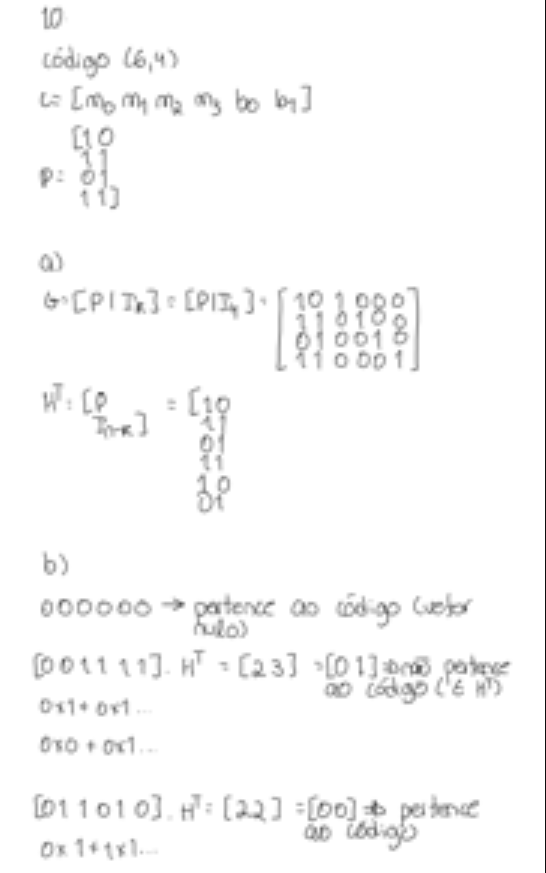 10
código (6,4)
c= [m0 m1 m2 m3 b0 b1]
[10
11
P= 01
11]
a)
G=[P|IK] = [P|I4] = [10 1000
11 0100
01 0010
11 0001]
HT= [P = [10
In-K] 11
01
11
10
01
b)
000000 → pertence ao código (vetor
nulo)
[001111]. HT = [23] =[01]⇒não pertence
ao código (∈ HT)
0x1+0x1...
0x0 + 0x1...
[011010]. HT= [22] =[00] ⇒ pertence
ao código
0x1+1x1...